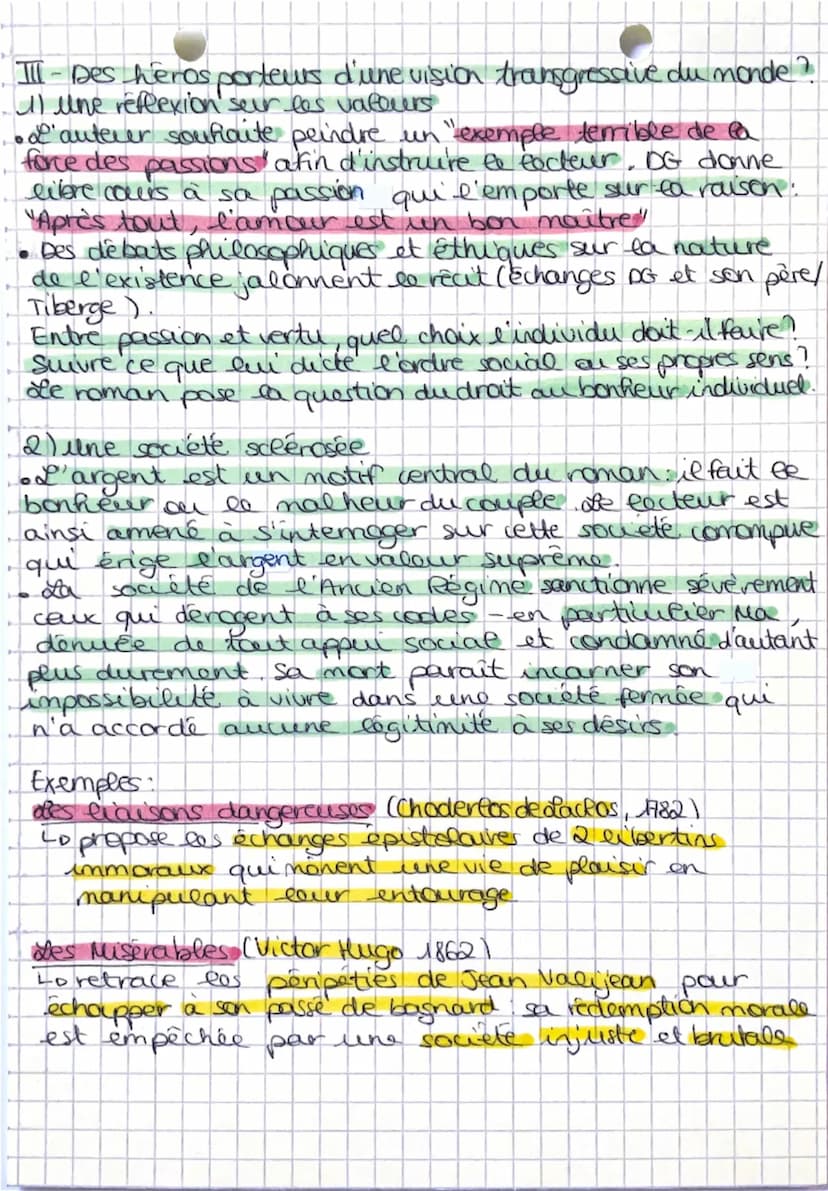 III - Des héros porteurs d'une vision transgressive du monde ?
1) Une réflexion sur les valeurs
• L'auteur souhaite peindre un "exemple terrible de la
force des passions" afin d'instruire le lecteur. DG donne
libre cours à sa passion qui l'emporte sur la raison :
"Après tout, l'amour est un bon maître"
• Des débats philosophiques et éthiques sur la nature
de l'existence jalonnent le récit (échanges DG et son père/
Tiberge).
Entre passion et vertu, quel choix l'individu doit-il faire ?
Suivre ce que lui dicte l'ordre social ou ses propres sens ?
Le roman pose la question du droit au bonheur individuel.
2) Une société sclérosée
• L'argent est un motif central du roman : il fait le
bonheur ou le malheur du couple. Le lecteur est
ainsi amené à s'interroger sur cette société corrompue
qui érige l'argent en valeur suprême.
• La société de l'Ancien Régime sanctionne sévèrement
ceux qui dérogent à ses codes - en particulier Ma,
dénuée de tout appui social et condamné d'autant
plus durement. Sa mort paraît incarner son
impossibilité à vivre dans une société fermée qui
n'a accordé aucune légitimité à ses désirs.
Exemples :
Les liaisons dangereuses (Choderlos de Laclos, 1782)
↳ propose les échanges épistolaires de 2 libertins
immoraux qui mènent une vie de plaisir en
manipulant leur entourage
Les Misérables (Victor Hugo 1862)
↳ retrace les péripéties de Jean Valjean pour
échapper à son passé de bagnard : sa rédemption morale
est empêchée par une société injuste et brutale